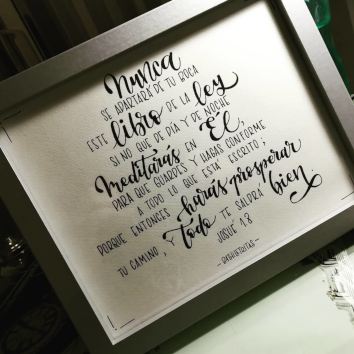 Nunca
SE APARTARÁ DE TU BOCA
ESTE libro DE LA ley
SI NO QUE DE DÍA Y DE NOCHE
Meditarás EN Él,
PARA QUE GUARDES Y HAGAS CONFORME
A TODO LO QUE ESTA ESCRITO;
PORQUE ENTONCES harás prosperar
TU CAMINO, Y Todo TE SALDRÁ bien
JOSUÉ 1:8